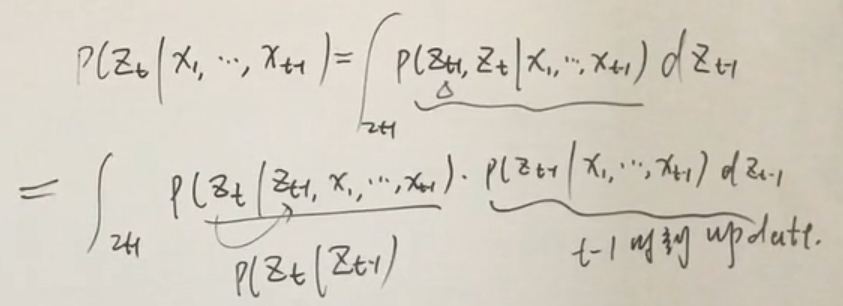 P(Zt | X1, ..., Xt-1) = ∫zt-1 P(Zt-1, Zt | X1, ..., Xt-1) dZt-1
Δ
= ∫zt-1 P(Zt | Zt-1, X1, ..., Xt-1) · P(Zt-1 | X1, ..., Xt-1) dZt-1
P(Zt | Zt-1)
t-1 时刻 update.